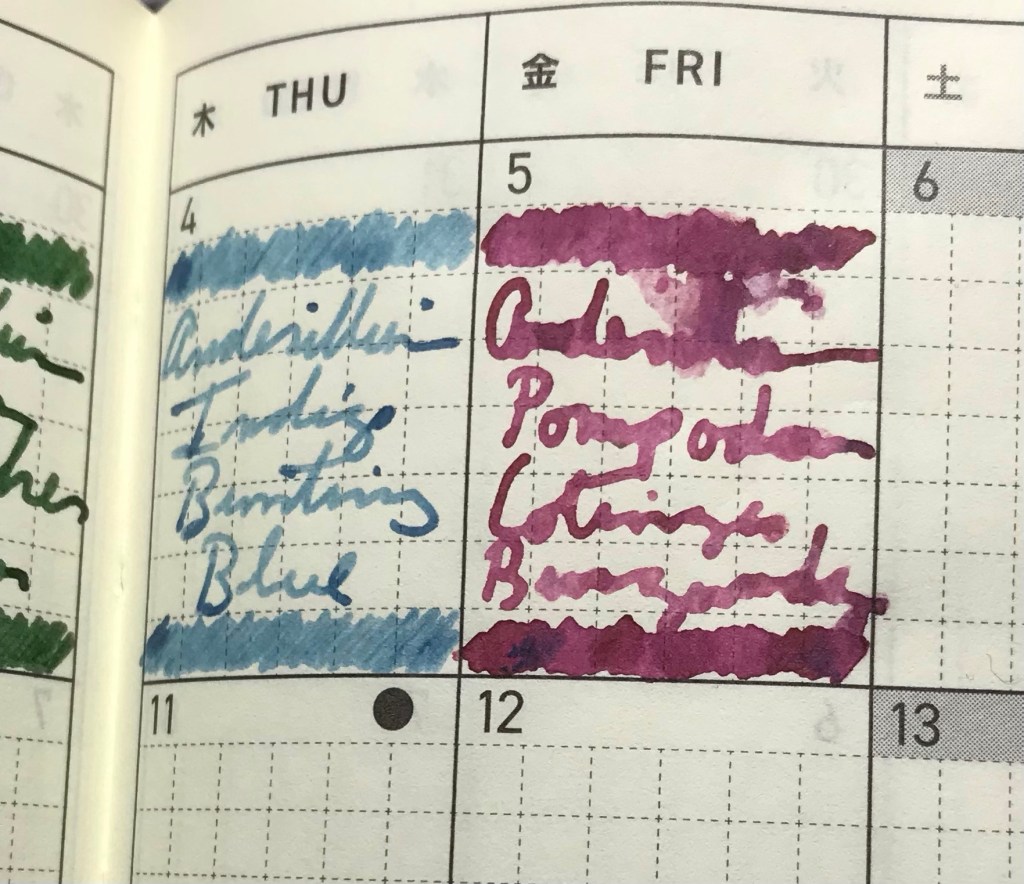 木 THU
金 FRI
土
4
5
6
Anderillium
Indigo
Bunting
Blue
Pompadour
Cotinga
Burgundy
11
12
13